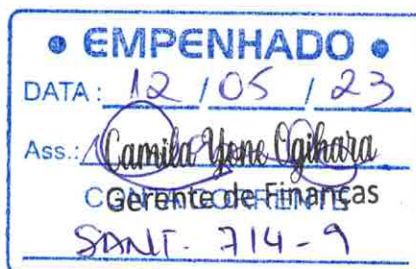 • EMPENHADO •
DATA: 12 / 05 / 23
Ass.: Camila Yone Ogihara
Gerente de Finanças
SANT. 714-9